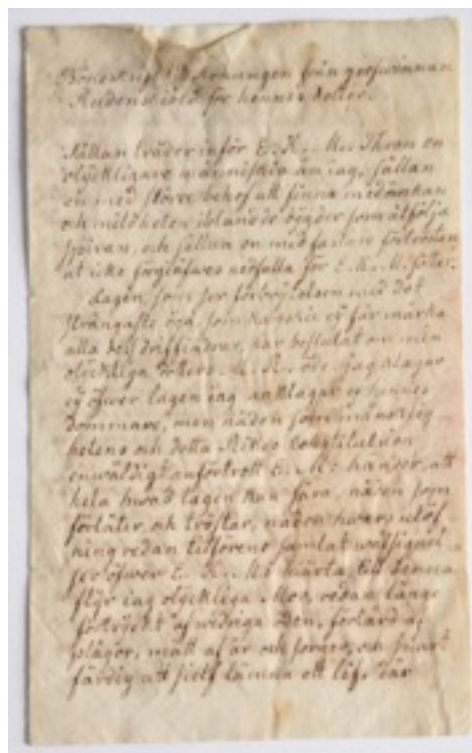 Böneskrift til Konungen från grefwinnan
Rudenskiöld för hennes dotter.
Sällan träder inför E. K. M. Thron en
olyckligare menniskia än iag, sällan
en med större behof att finna medömkan
och mildheten iblan de dygder som åtfölja
spiran, och sällan en med fastare förtröstan
at icke förgiäfwes nedfalla för E. K. M. fötter.
Lagen som ser förbrytelsen med det
strängaste öga, som kanske ej får märka
alla dess driffiädrar, har beslutat om min
olyckliga dotters öde. jag klagar
ej öfwer lagen iag anklagar ej hennes
dommare, men nåden som
helene och detta Rikes Constitution
enwäldigt anförtrott E. M:s händer, att
hela hwad lagen kan såra, nåden som
förlåter och tröstar, nåden hwars utöf-
ning redan tilförene samlat wälsignel-
ser öfwer E. K. M:s hiärta, till denna
flyr iag olyckliga Mor, redan länge
förtryckt af widriga öden, förtärd af
plågor, matt af år och sorger, och snart
färdig att sielf lämna ett lif, där